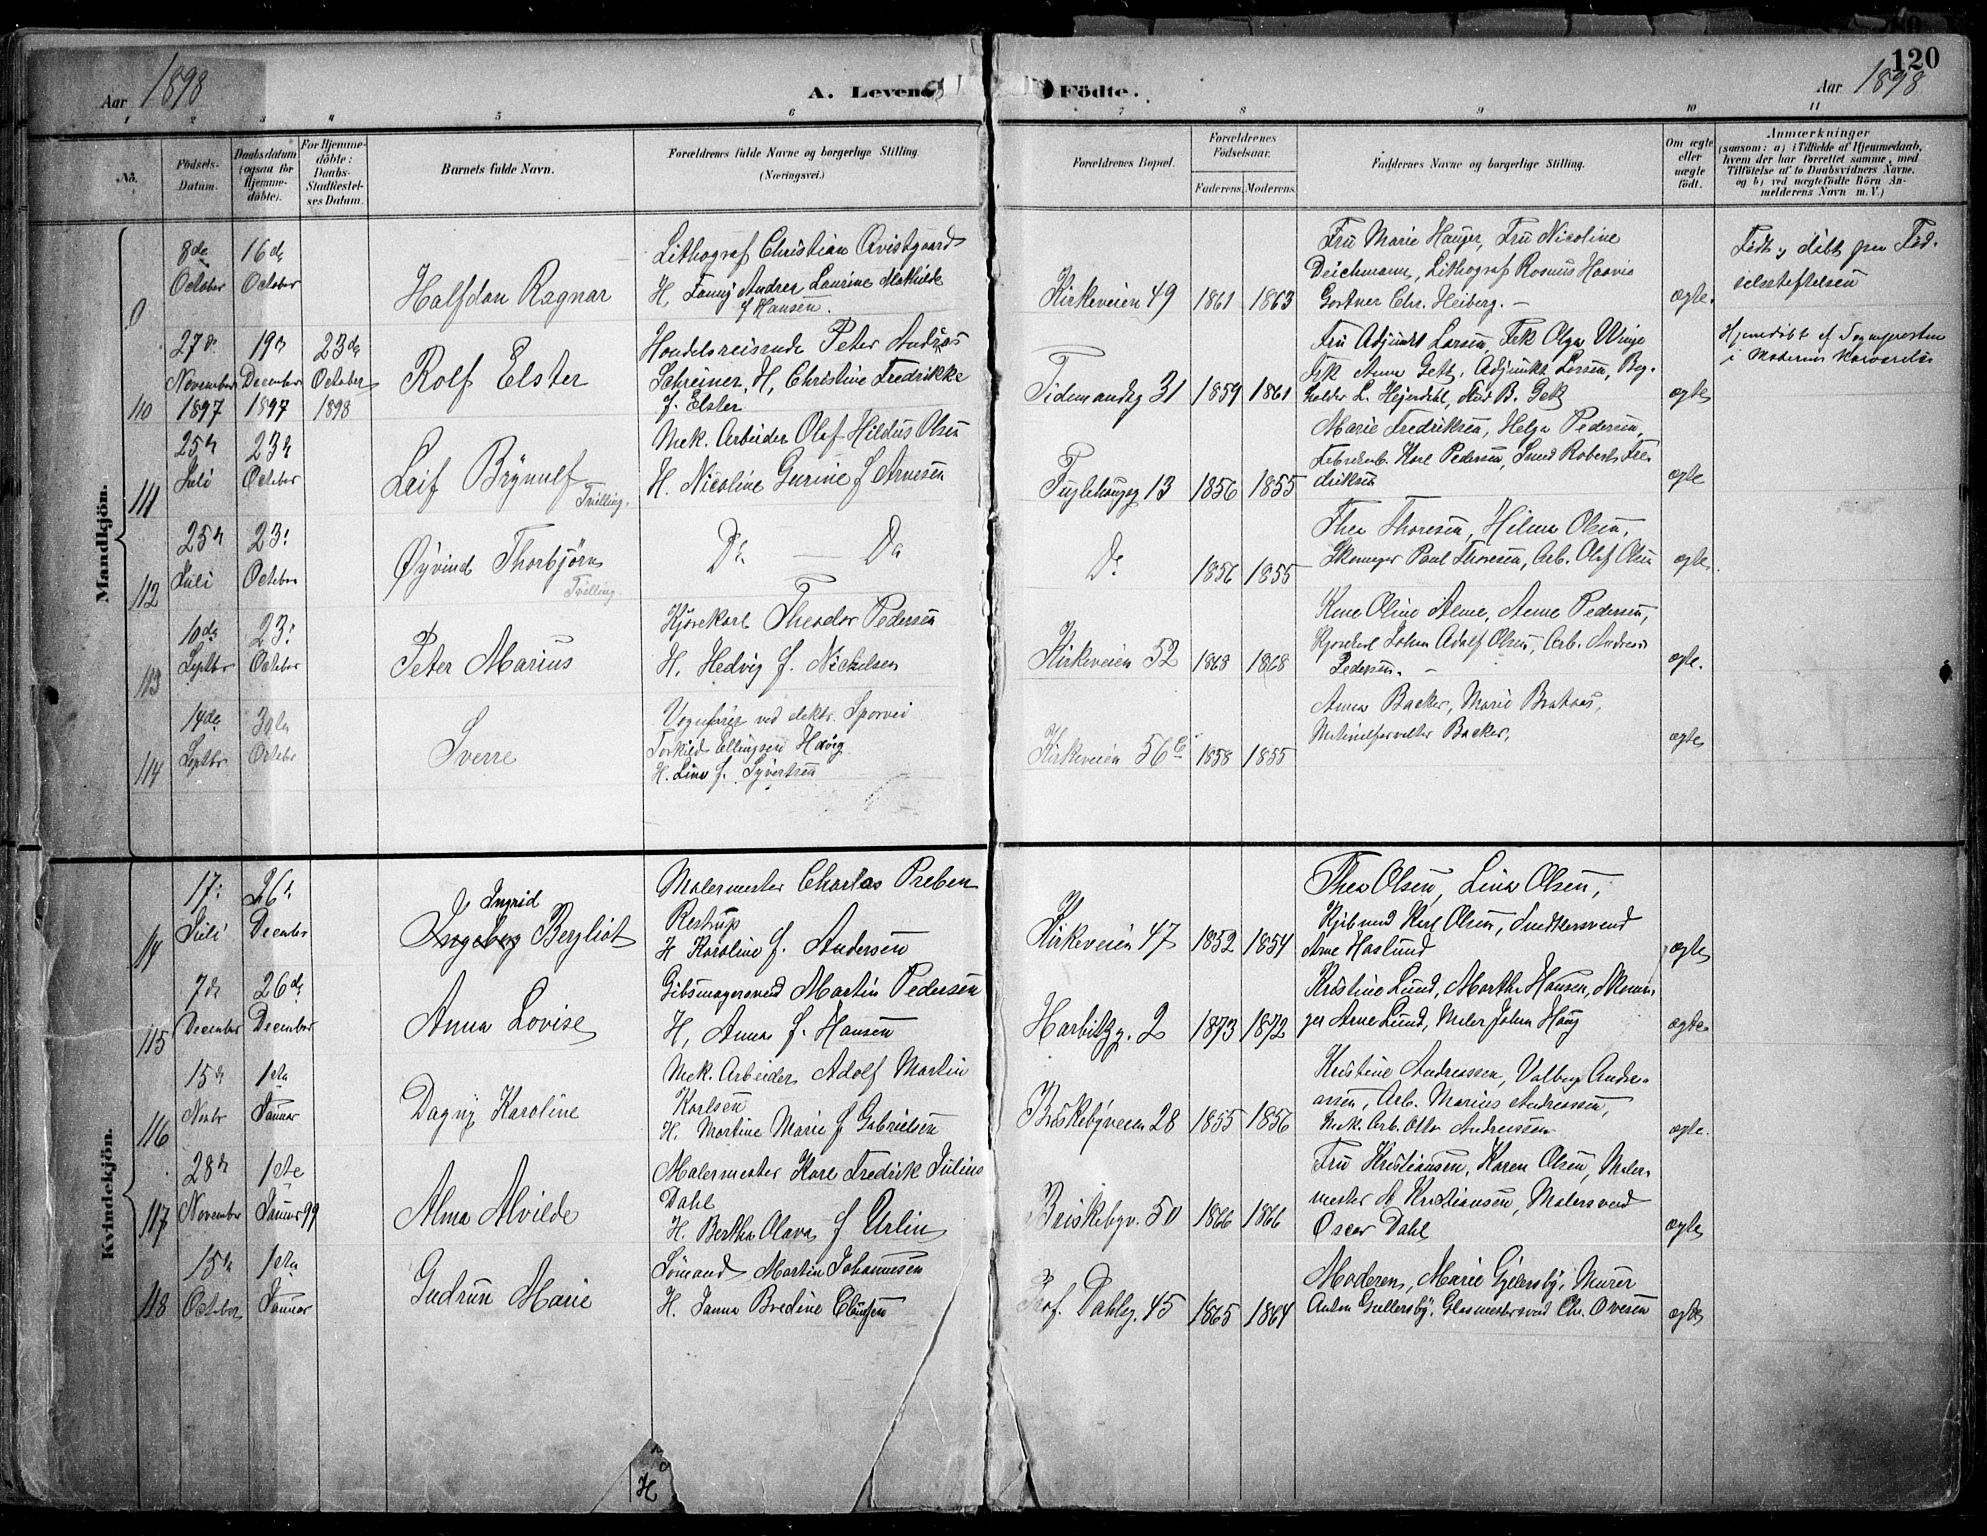 120
Aar 1898
A. Levende Födte.
Aar 1898
1 2 3 4 5 6 7 8 9 10 11
No.
Födsels-Datum.
Daabsdatum (ogsaa for Hjemme-döbte).
For Hjemme-döbte: Daabs-Stadfæstel-ses Datum.
Barnets fulde Navn.
Forældrenes fulde Navne og borgerlige Stilling.
(Næringsvei.)
Forældrenes Bopæl.
Forældrenes Födselsaar.
Faderens. Moderens.
Faddernes Navne og borgerlige Stilling.
Om ægte eller uægte födt.
Anmærkninger
(saasom: a) i Tilfælde af Hjemmedaab, hvem der har forrettet samme, med Tilföielse af to Daabsvidners Navne. og b) ved uægtefödte Börn Anmelderens Navn m. V.)
Mandkjön.
8de October
16de October
Halfdan Ragnar
Lithograf Christian Qvistgaard
H. Fanny Andrea Laurine Mathilde
f Hansen.
Kirkeveien 49
1861
1863
Fru Marie Hauger, Fru Nicoline
Deichmann, Lithograf Rasmus Haavie
Gartner Chr. Heiberg. —
ægte.
Født og døbt paa Fød-
selsstiftelsen
110
27de November 1897
19de December 1897
23de October 1898
Rolf Elster
Handelsreisende Peter Andreas
Schreiner, H, Christine Fredrikke
f. Elster
Tidemandsg 31
1859
1861
Fru Adjunkt Larsen, Frk Olga Vinje
Frk Anna Getz, Adjunkt Larsen, Bog-
holder L. Hejerdahl, Stud B. Getz
ægte
Hjemdøbt af Sognepresten
i Moderens Nærværelse
111
25de Juli
23de October
Leif Brynulf
Tvilling.
Mek. Arbeider Olaf Hildus Olsen
H. Nicoline Gurine f Arnesen
Fuglehaugg 13
1856
1855
Marie Fredriksen, Helga Pedersen,
Fabrikarb. Karl Pedersen, Smed Robert Fre-
driksen
ægte
112
25de Juli
23: October
Øyvind Thorbjørn
Tvilling.
Do — Do
Do
1856
1855
Thea Thoresen, Hilma Olsen,
Skomager Paul Thoresen, Arb. Olaf Olsen
ægte.
113
10de Septbr
23: October
Peter Marius
Kjørekarl Theodor Pedersen
H. Hedvig f. Nickelsen
Kirkeveien 52
1868
1868
Kone Oline Arne, Anne Pedersen,
Kjørekarl Johan Adolf Olsen, Arb. Andreas
Pedersen. —
ægte.
114
14de Septbr
30te October
Sverre
Vognfører ved elektr. Sporvei
Torkild Ellingsen Haug
H. Lina f. Syvertsen
Kirkeveien 56
1858
1855
Anna Backer, Marie Brataas,
Materialforvalter Backer.
ægte
Kvindekjön.
114
17: Juli
26de December
Ingrid
Ingeborg Bergliot
Malermester Charles Preben
Restrup
H Karoline f. Andersen
Kirkeveien 47
1852
1854
Thea Olsen, Lina Olsen,
Kjøbmand Karl Olsen, Snedkersvend
Arne Haslund
ægte
115
7de December
26de December
Anna Lovise
Gibsmagersvend Martin Pedersen
H, Anna f. Hansen
Harbitzg. 2
1873
1872
Kristine Lund, Martha Hansen, Skoma-
ger Arne Lund, Maler Johan Haug
ægte
116
15de Novbr
1ste Januar
Dagny Karoline
Mek. Arbeider Adolf Martin
Karlsen
H. Martine Marie f Gabrielsen
Briskebyveien 28
1855
1856
Kristine Andreassen, Valborg Andre-
assen, Arb. Marius Andreassen,
Mek. Arb. Otto Andreassen
ægte.
117
28de November
1ste Januar 99
Alma Alvilde
Malermester Karl Fredrik Julius
Dahl
H. Bertha Olava f Urlin
Briskebyv. 50
1866
1866
Fru Kristiansen, Karen Olsen, Maler-
mester A Kristiansen, Malersvend
Oscar Dahl
ægte
118
15de October
1ste Januar
Gudrun Marie
Sömand Martin Johannesen
H. Janna Bredine Clausen
Prof. Dahlsg. 45
1865
1864
Moderen, Marie Gjellersby, Murer
Anton Gullersby, Glasmestersvend Chr. Ovesen
ægte
H